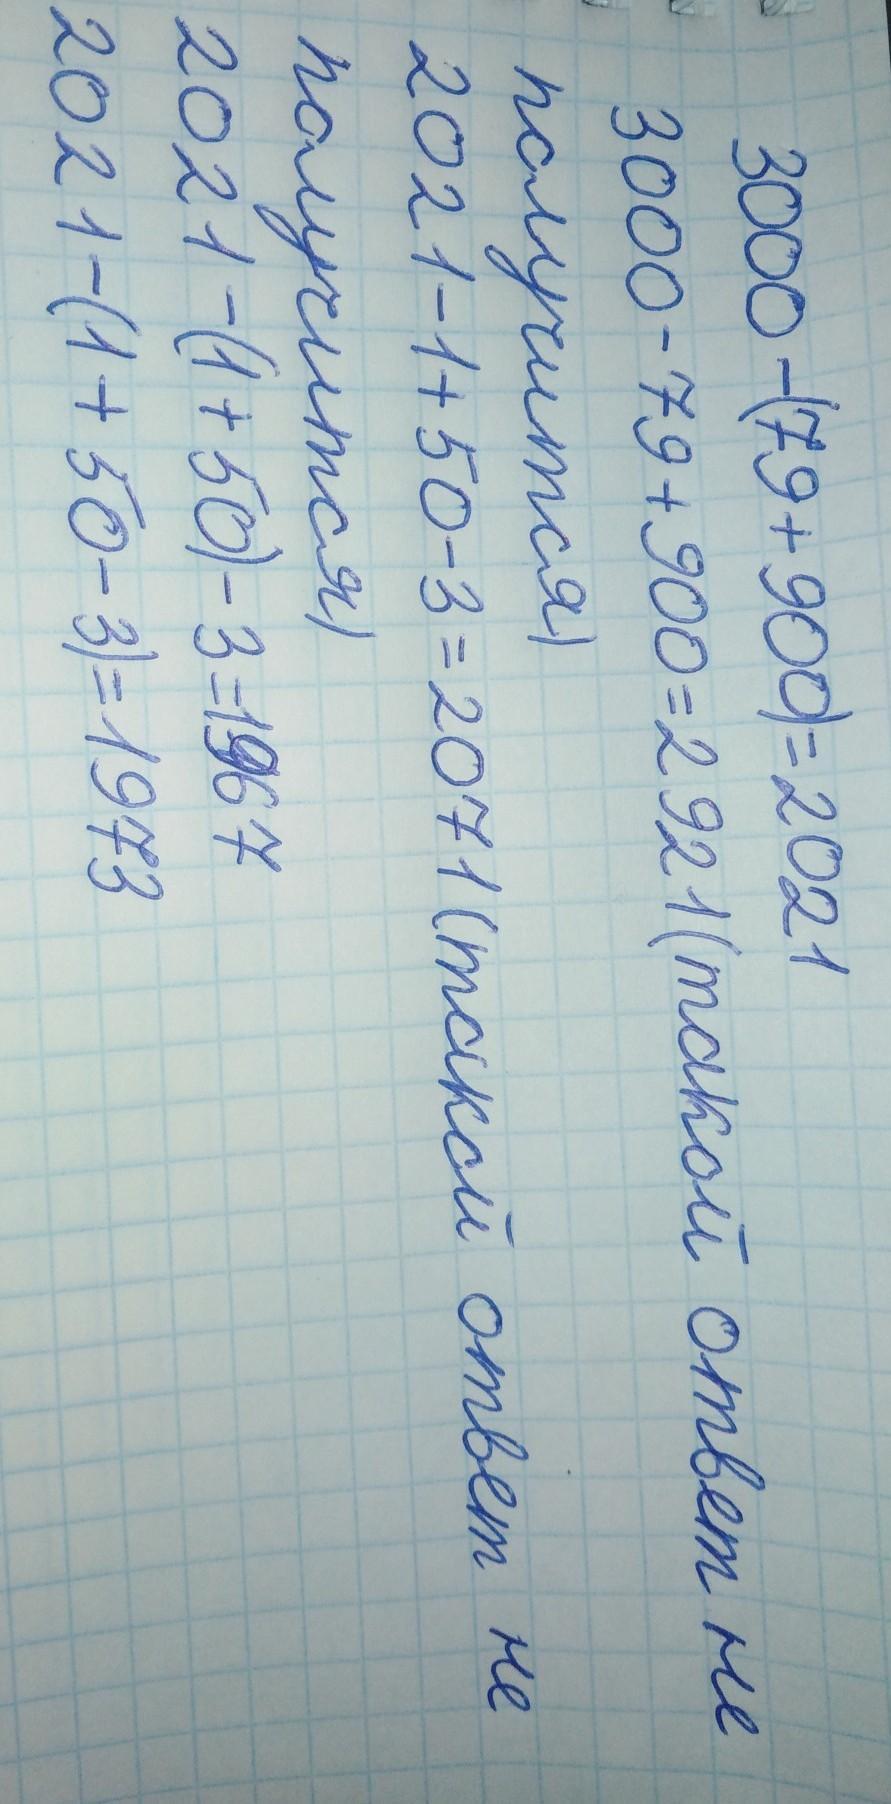 3000-(79+900)=2021
3000-79+900=2921(такой ответ не
получится)
2021-1+50-3=2071(такой ответ не
получится)
2021-(1+50)-3=1967
2021-(1+50-3)=1973